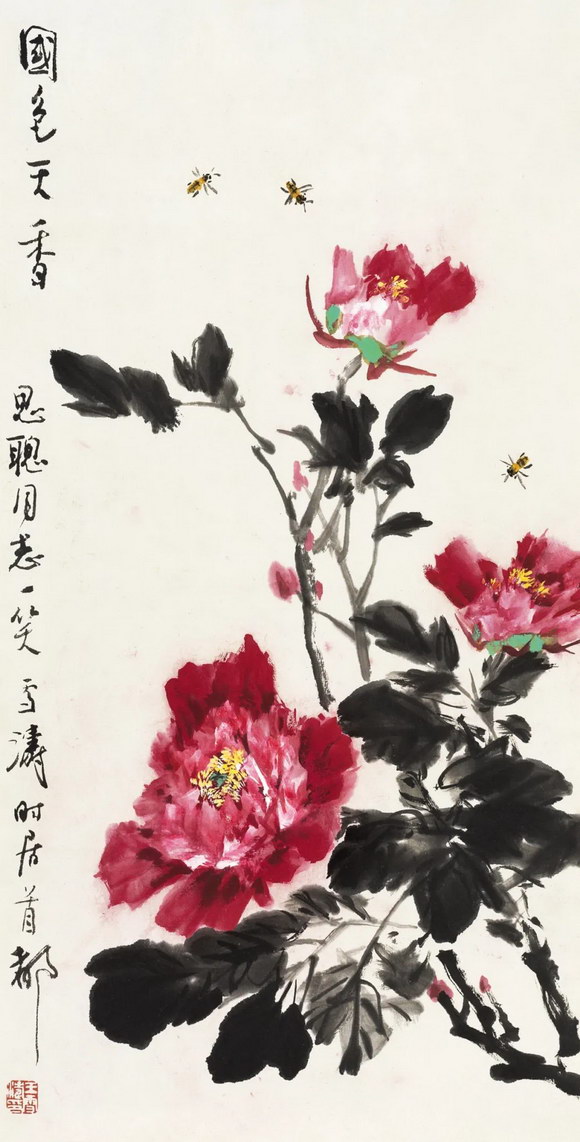 國色天香
思聰同志一笑 雪濤時居首都
王雪濤印